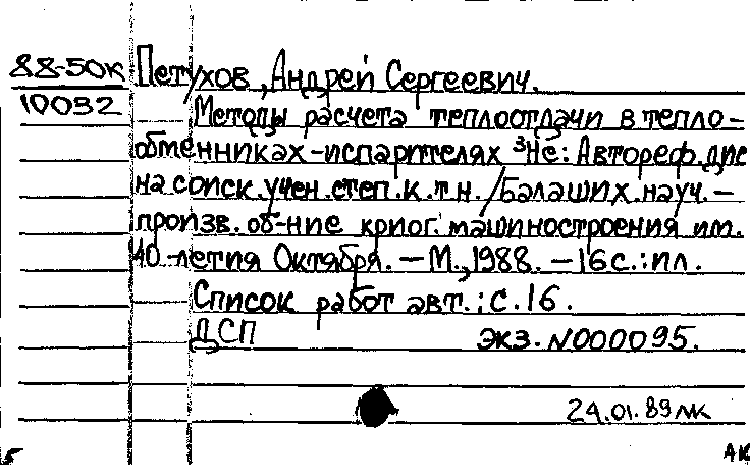 88-50к Петухов, Андрей Сергеевич.
10032 Методы расчета теплоотдачи в тепло-
обменниках-испарителях ³He: Автореф. дис
на соиск. учен. степ. к.т.н. / Балаших. науч.-
произв. об-ние криог. машиностроения им.
40-летия Октября. - М., 1988. - 16 с.: ил.
Список работ авт.: с. 16.
ДСП экз. N000095.
24.01.89 лк